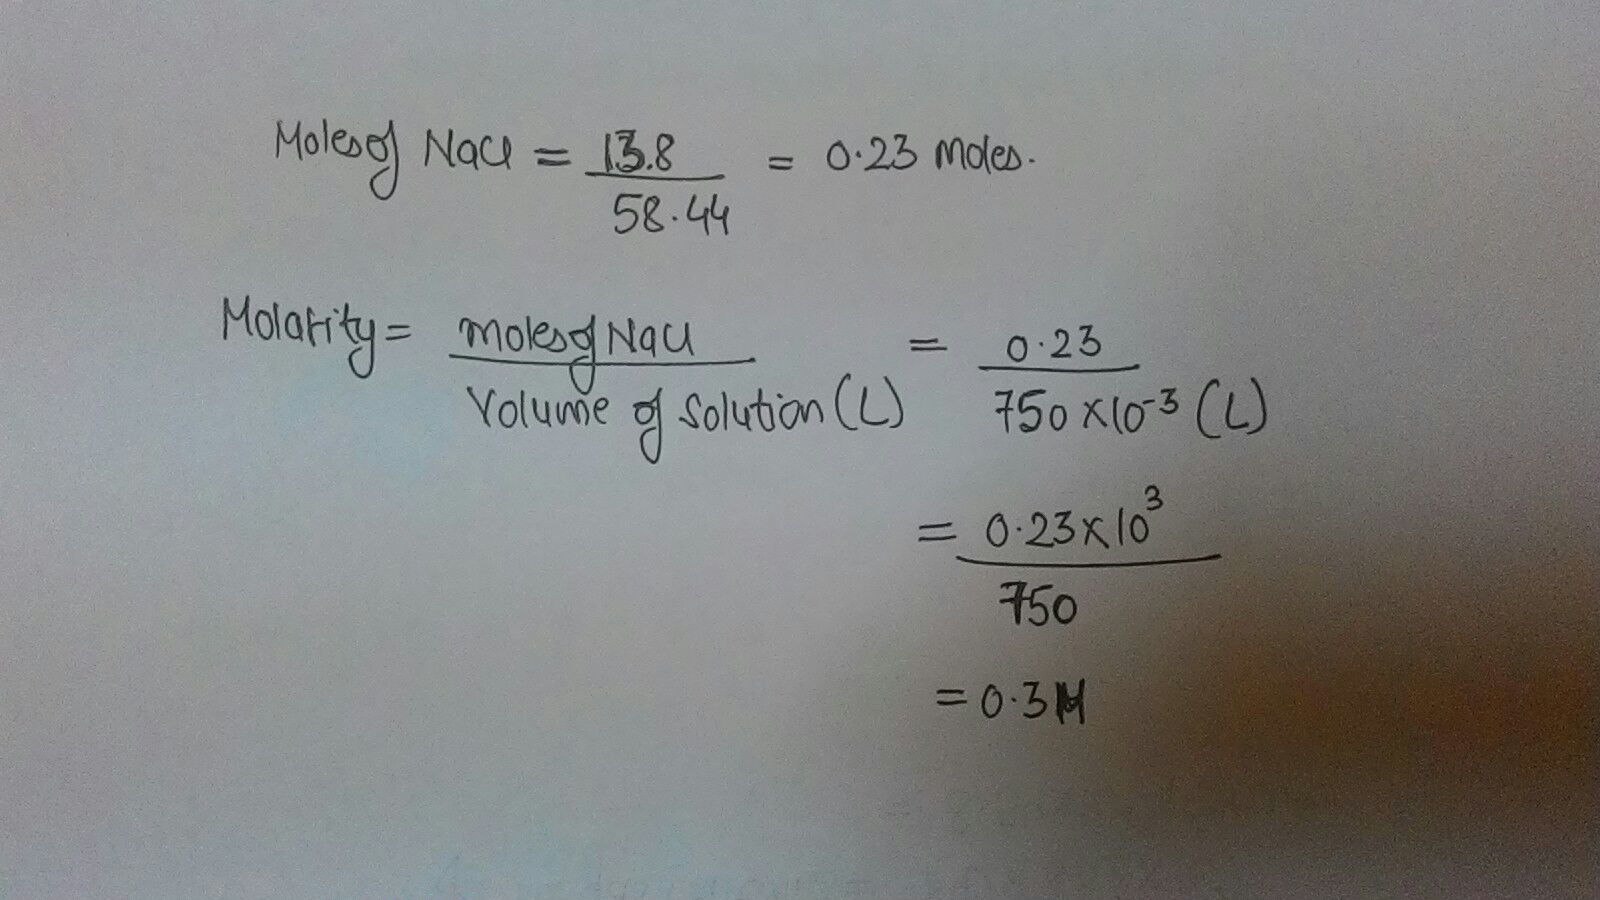 Moles of NaCl = 13.8 / 58.44 = 0.23 moles.
Molarity = moles of NaCl / Volume of Solution (L) = 0.23 / 750 × 10⁻³ (L)
= 0.23 × 10³ / 750
= 0.3 M